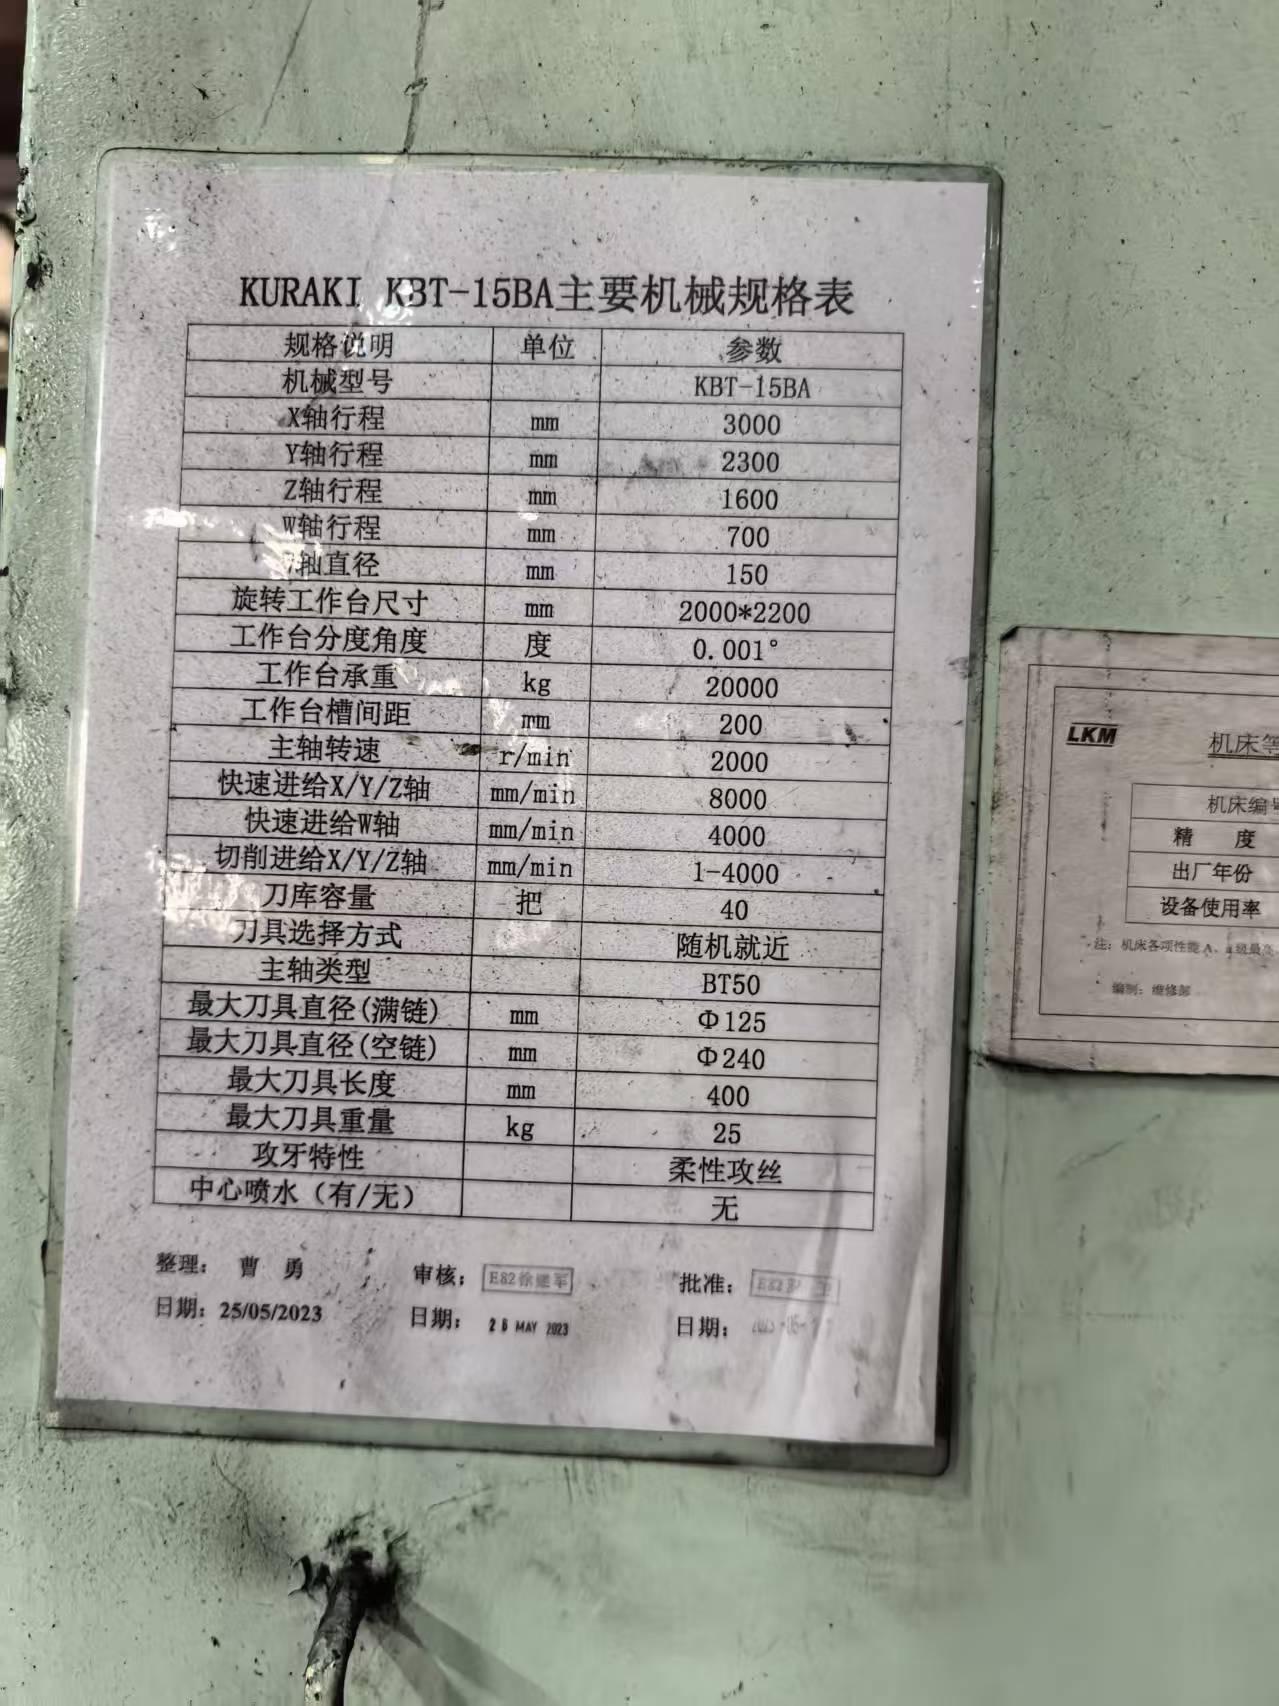 KURAKI KBT-15BA主要机械规格表
规格说明 单位 参数
机械型号 KBT-15BA
X轴行程 mm 3000
Y轴行程 mm 2300
Z轴行程 mm 1600
W轴行程 mm 700
轴直径 mm 150
旋转工作台尺寸 mm 2000*2200
工作台分度角度 度 0.001°
工作台承重 kg 20000
工作台槽间距 mm 200
主轴转速 r/min 2000
快速进给X/Y/Z轴 mm/min 8000
快速进给W轴 mm/min 4000
切削进给X/Y/Z轴 mm/min 1-4000
刀库容量 把 40
刀具选择方式 随机就近
主轴类型 BT50
最大刀具直径(满链) mm Φ125
最大刀具直径(空链) mm Φ240
最大刀具长度 mm 400
最大刀具重量 kg 25
攻牙特性 柔性攻丝
中心喷水（有/无） 无
整理：曹 勇 审核；E82徐建军 批准：
日期：25/05/2023 日期：26 MAY 2023 日期：
LKM 机床等
机床编号
精 度
出厂年份
设备使用率
注：机床各项性能A、
编制：维修部